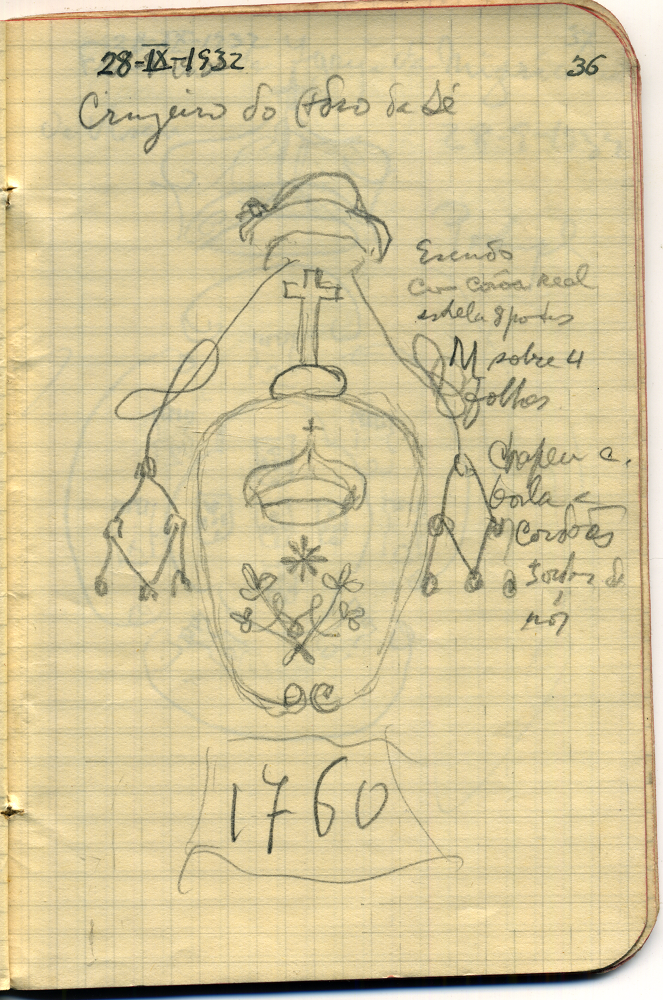 28-IX-1932
36
Cruzeiro do Adro da Sé
Escudo
com corôa real
estrela 8 pontas
M sobre 4
folhas
Chapeu c.
borla e
cordões
de
nós
DC
1760